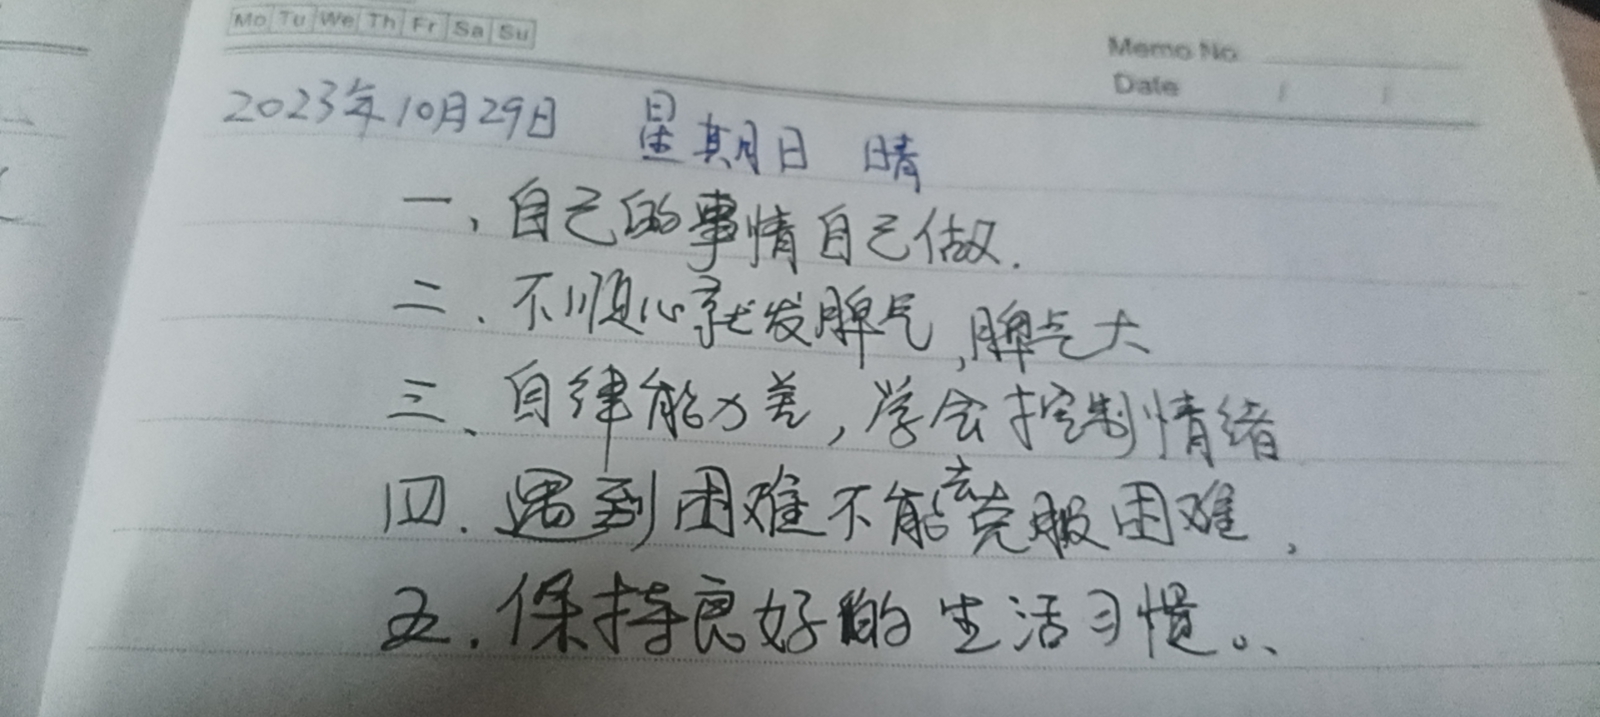 Mo Tu We Th Fr Sa Su
Memo No.
Date / /
2023年10月29日 星期日 晴
一、自己的事情自己做.
二、不顺心就发脾气,脾气大
三、自律能力差,学会控制情绪
四.遇到困难不能去克服困难,
五.保持良好的生活习惯。、